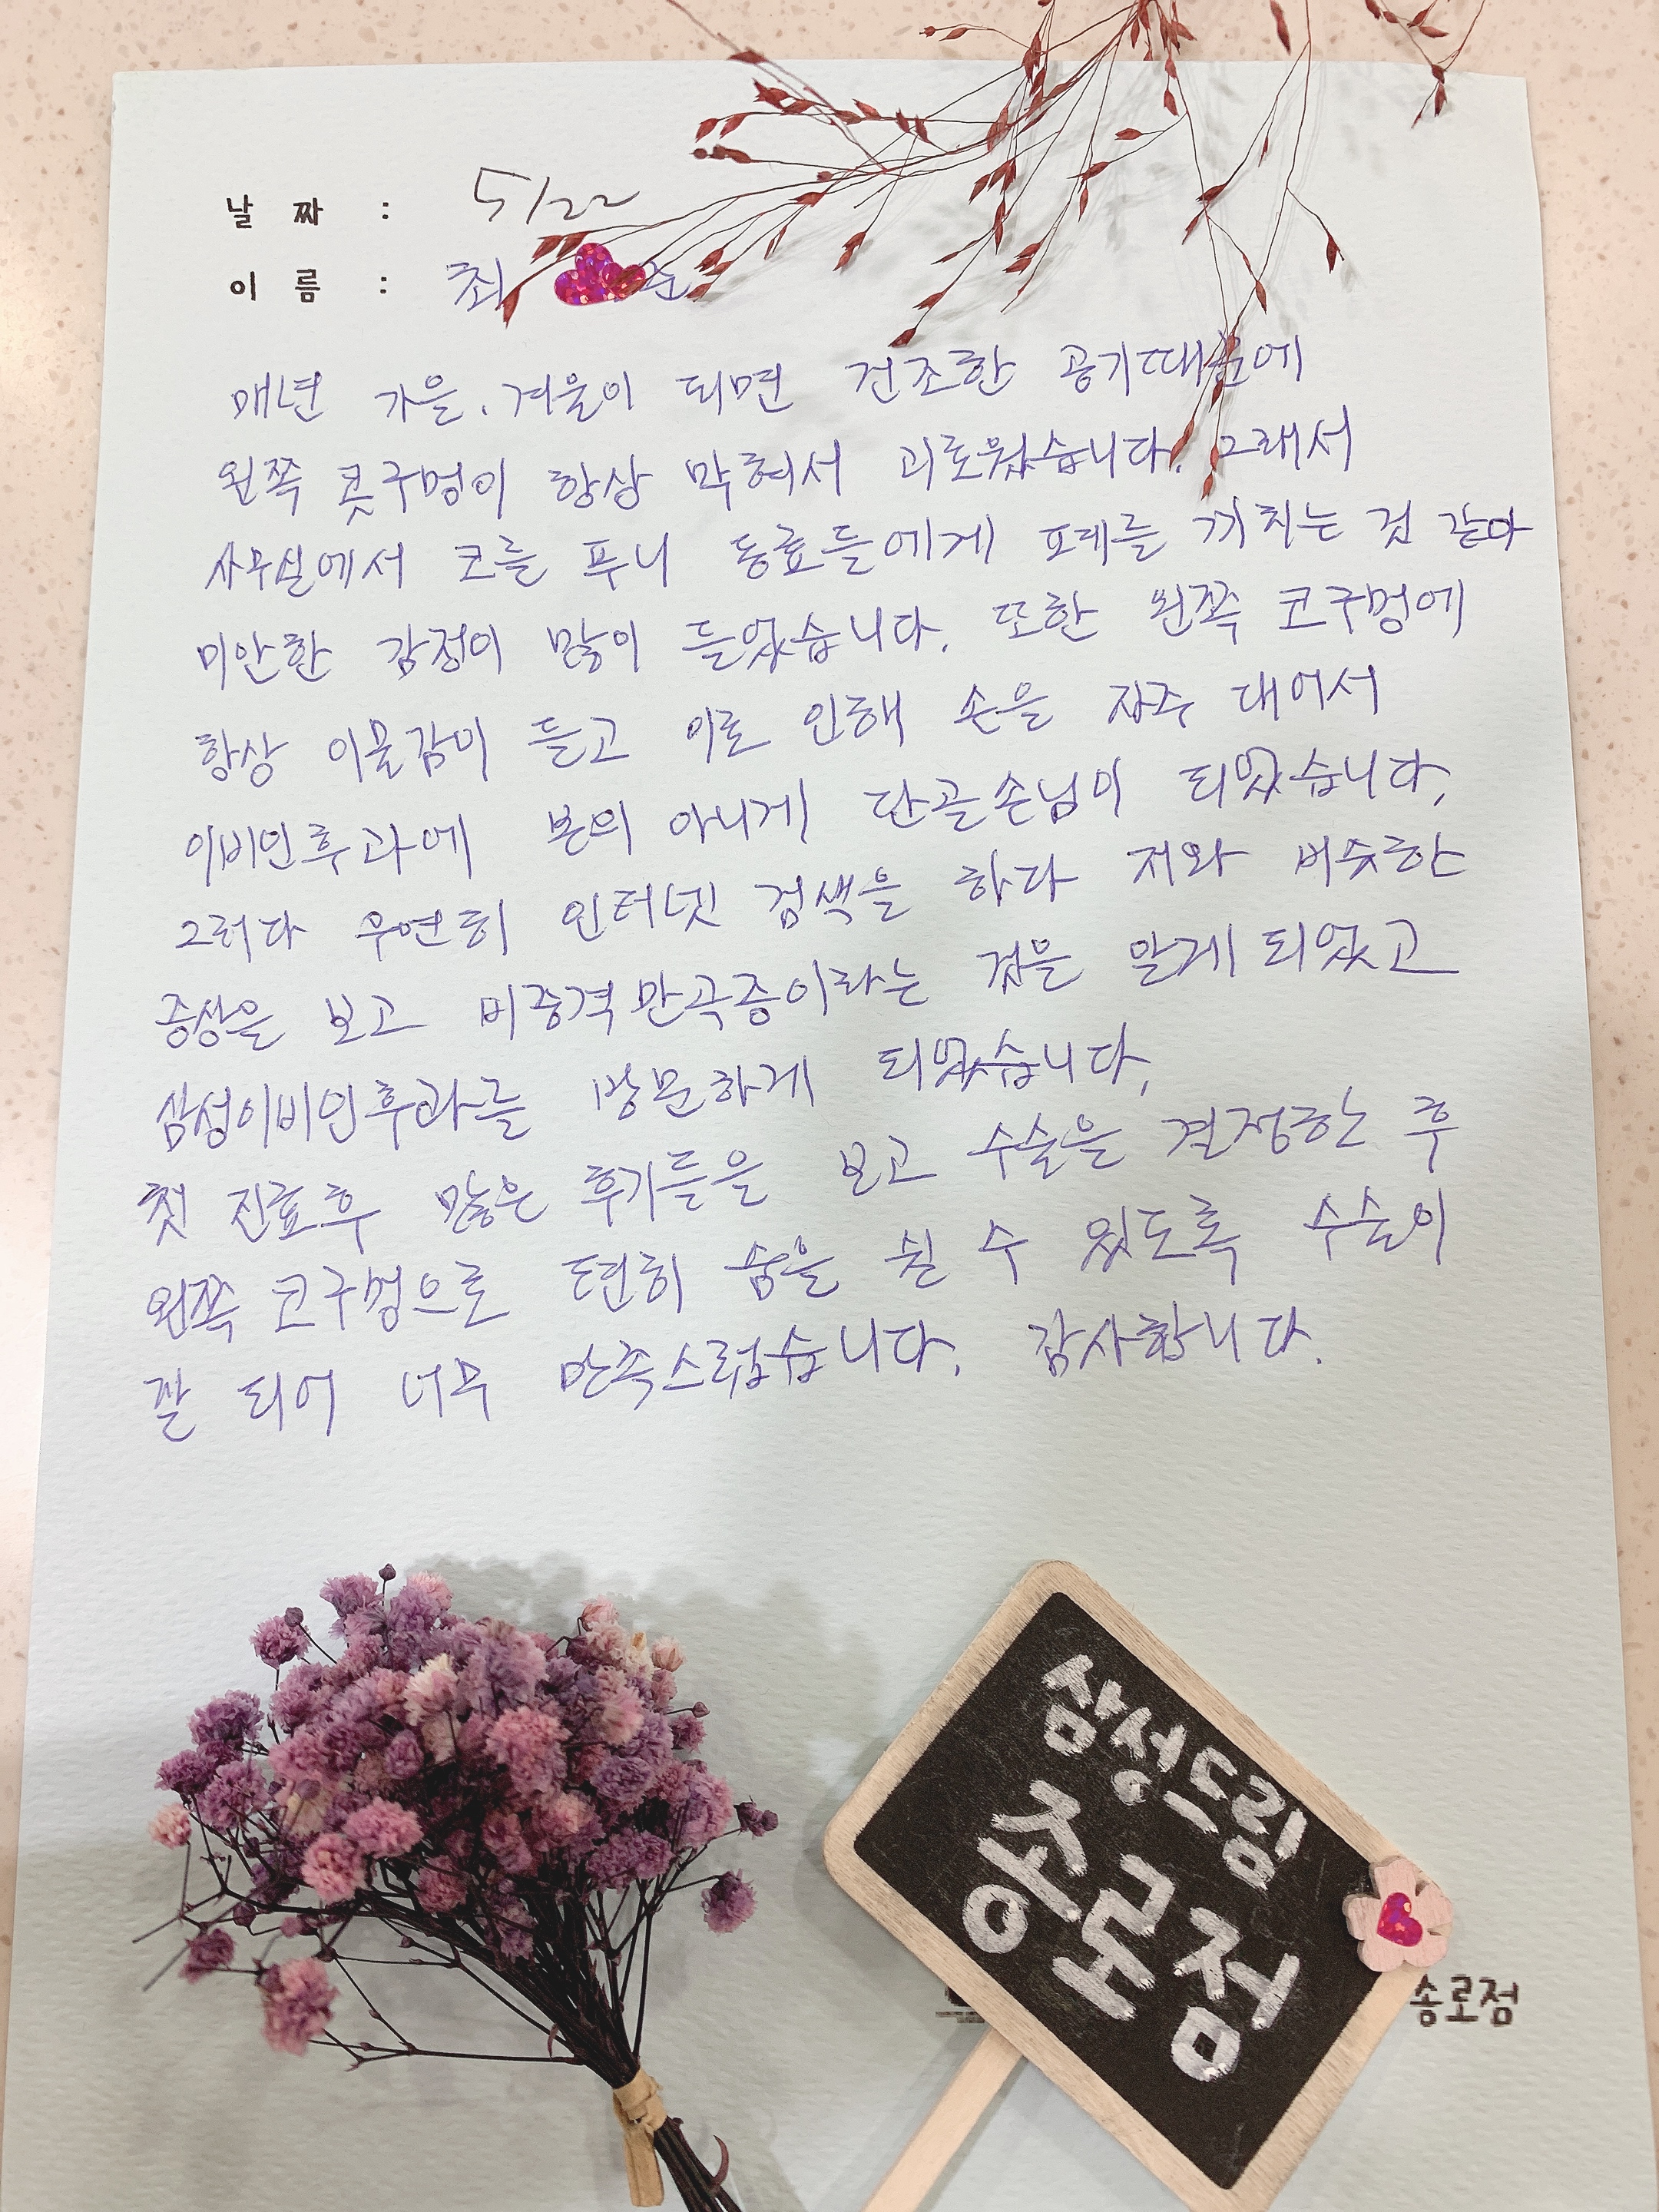 날 짜 : 5/22
이 름 : 최
매년 가을.겨울이 되면 건조한 공기때문에
왼쪽 콧구멍이 항상 막혀서 괴로웠습니다. 그래서
사무실에서 코를 푸니 동료들에게 포폐를 끼치는 것 같아
미안한 감정이 많이 들었습니다. 또한 왼쪽 코구멍에
항상 이물감이 들고 이로 인해 손을 자주 대어서
이비인후과에 본의 아니게 단골손님이 되었습니다.
그러다 우연히 인터넷 검색을 하다 저와 비슷한
증상을 보고 비중격만곡증이라는 것을 알게 되었고
삼성이비인후과를 방문하게 되었습니다.
첫 진료후 많은 후기들을 보고 수술을 결정한 후
왼쪽 코구멍으로 편히 숨을 쉴 수 있도록 수술이
잘 되어 너무 만족스럽습니다. 감사합니다.
삼성드림
송로점
송로점